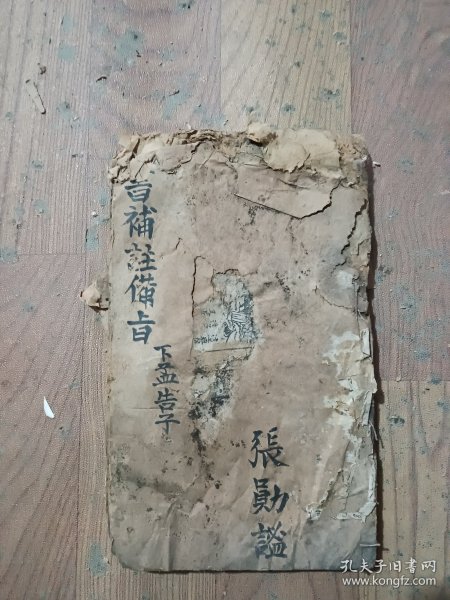 書補註備旨
下孟告子
張勛謚
孔夫子旧书网
www.kongfz.com